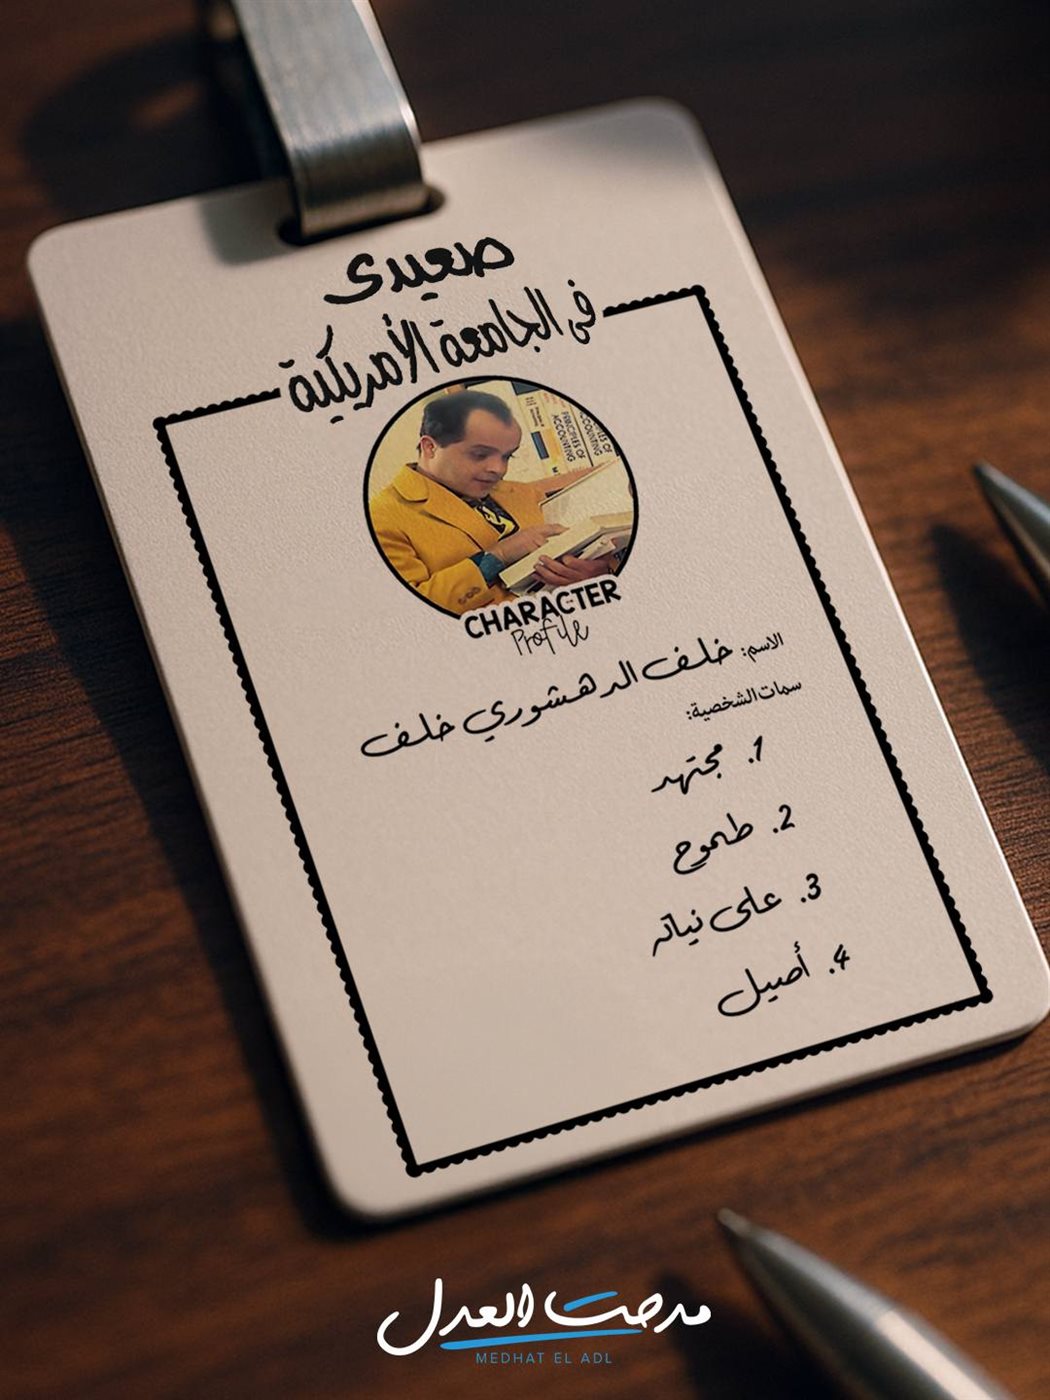 صعيدى
فى الجامعة الأمريكية
PRINCIPLES OF
ACCOUNTING
CHARACTER
Profile
الاسم: خلف الدهشوري خلف
سمات الشخصية:
1. مجتهد
2. طموح
3. على نياته
4. أصيل
مدحت العدل
MEDHAT EL ADL